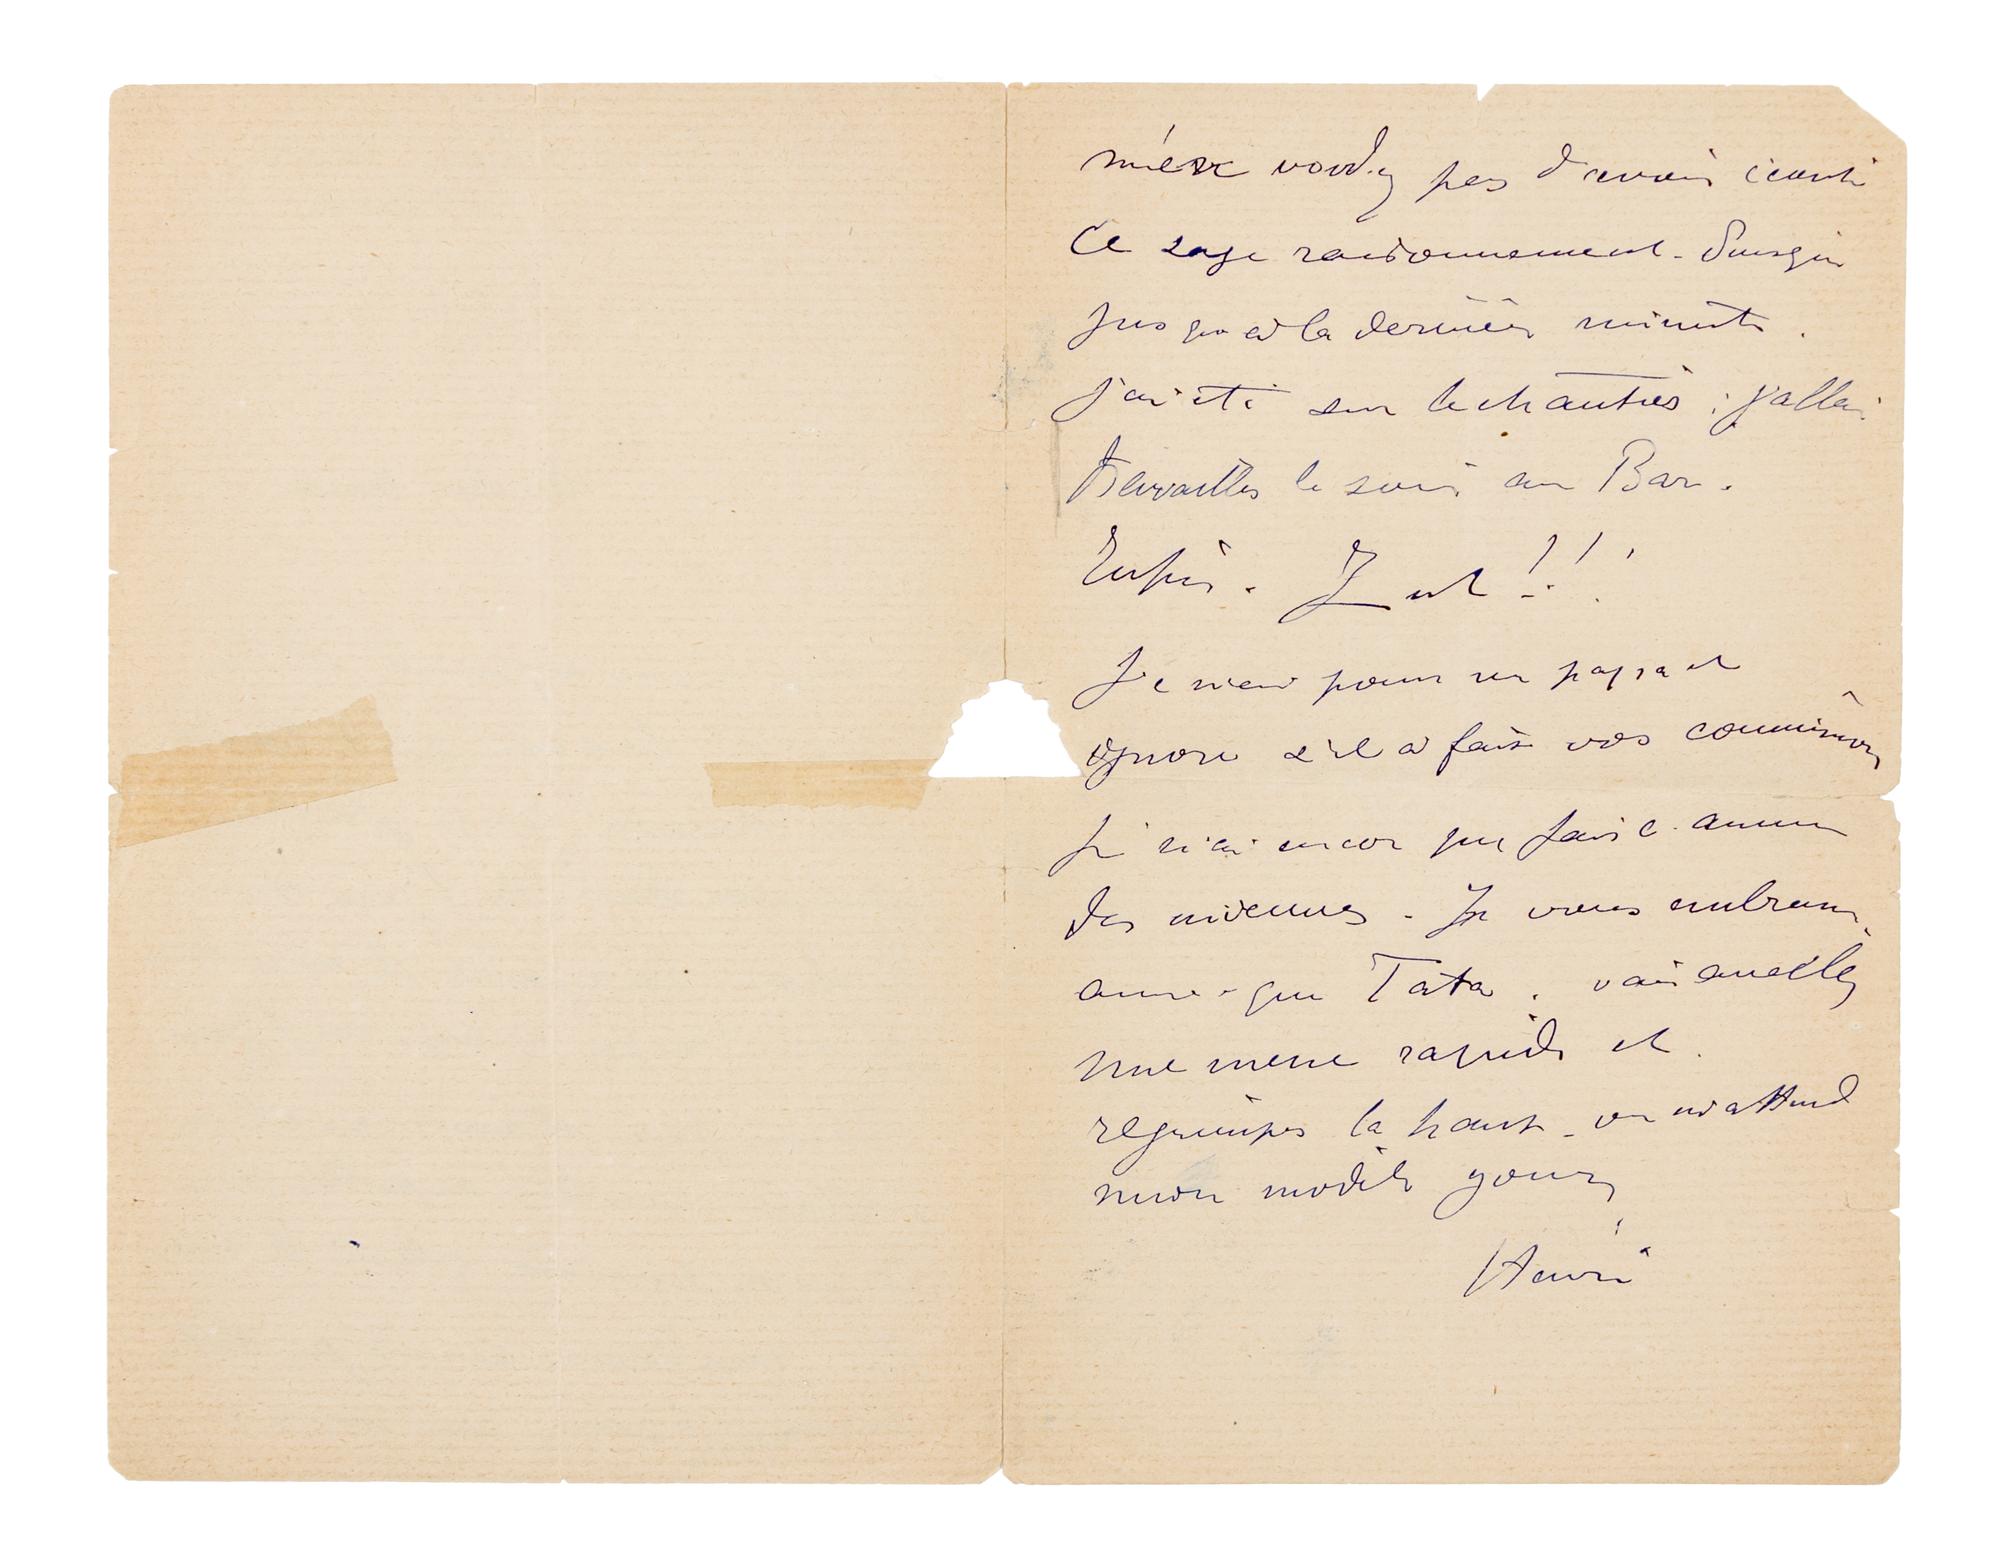 m'en voudrez pas d'avoir écarté
ce sage raisonnement. Puisque
jusqu'à la dernière minute.
j'ai été sur le chantier; j'allai
travailler le soir au Bar.
Enfin. Zut!!!
Je viens pour un papa et
ignore s'il a fait vos commissions
Je n'ai encor pu faire aucune
des miennes. Je vous embrasse
ainsi que Tata.
une messe rapide et
regrimper la haut. on m'attend
mon modèle yours
Henri